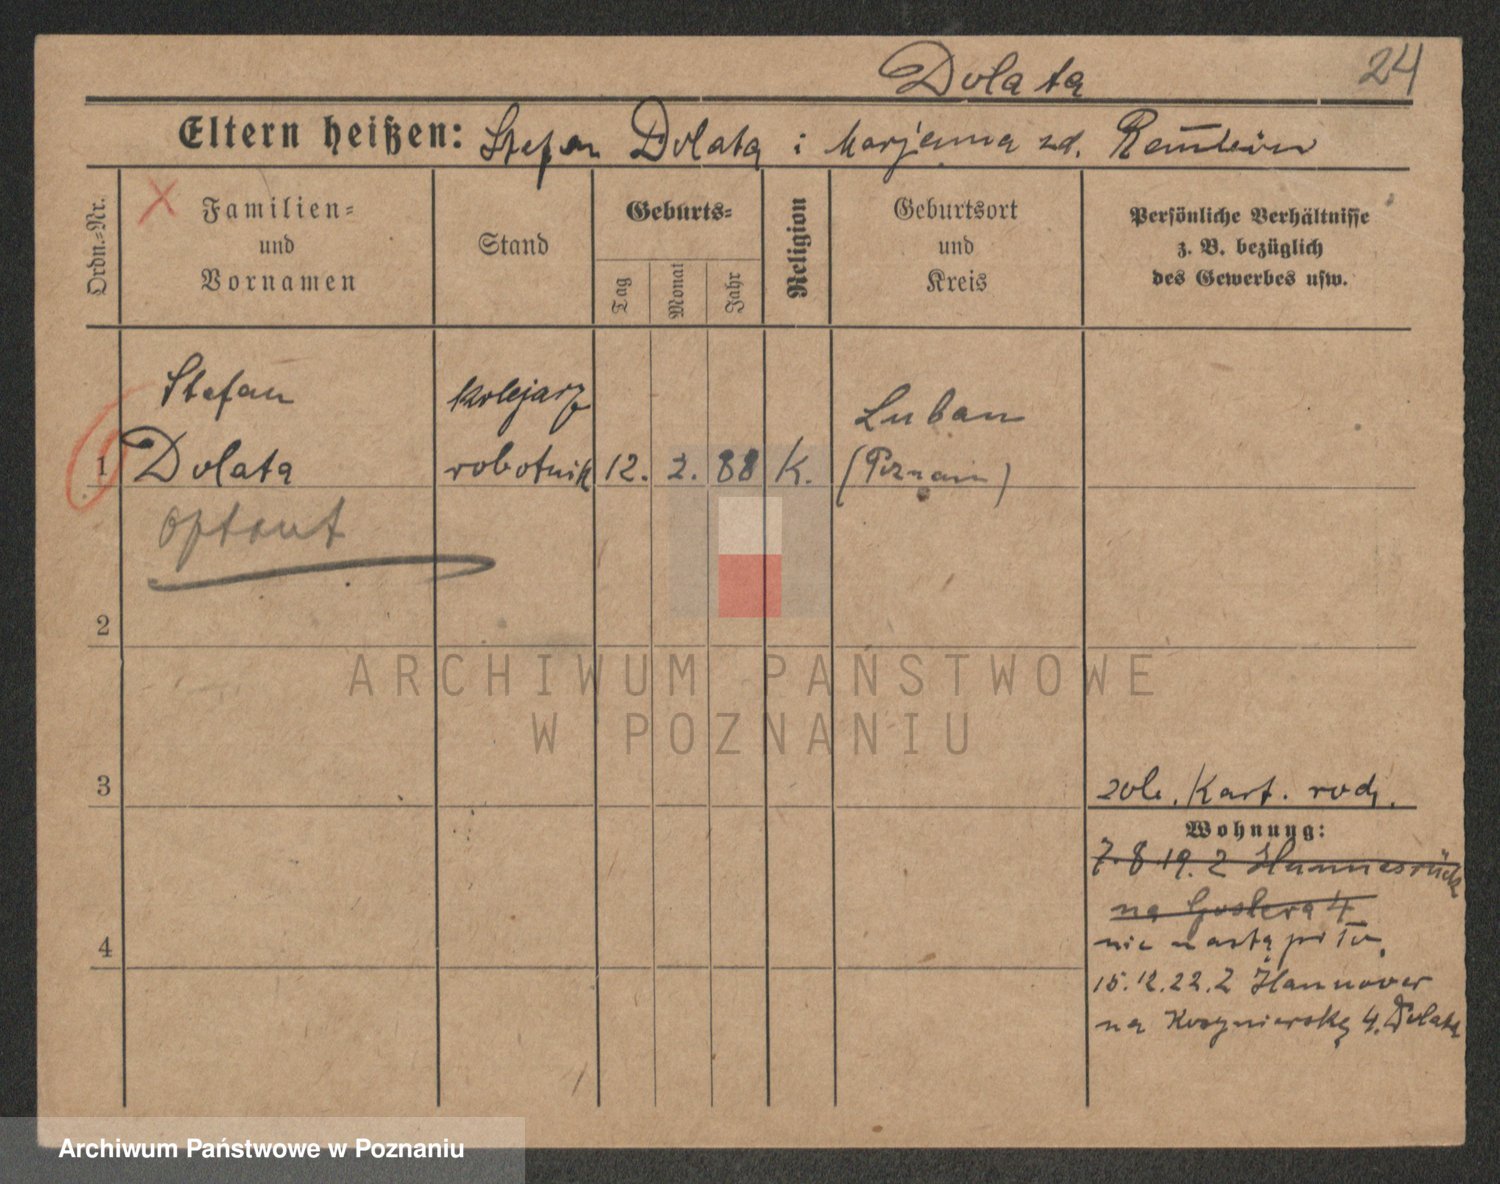 Dolata
24
Eltern heißen: Stefan Dolata i Marjanna zd.
Ordn.-Nr.
Familien-
und
Vornamen
Stand
Geburts-
Tag
Monat
Jahr
Religion
Geburtsort
und
Kreis
Persönliche Verhältnisse
z. B. bezüglich
des Gewerbes usw.
Stefan
kolejarz
Luban
1 Dolata robotnik 12. 2. 88 K. (Poznań)
optant
2
ARCHIWUM PAŃSTWOWE
W POZNANIU
3
zob. Kart. rodz.
Wohnung:
7.8.19. z
na Goslera 4
nie nastąpiło.
4
15.12.22. z Hannover
na 4. Dolata
Archiwum Państwowe w Poznaniu